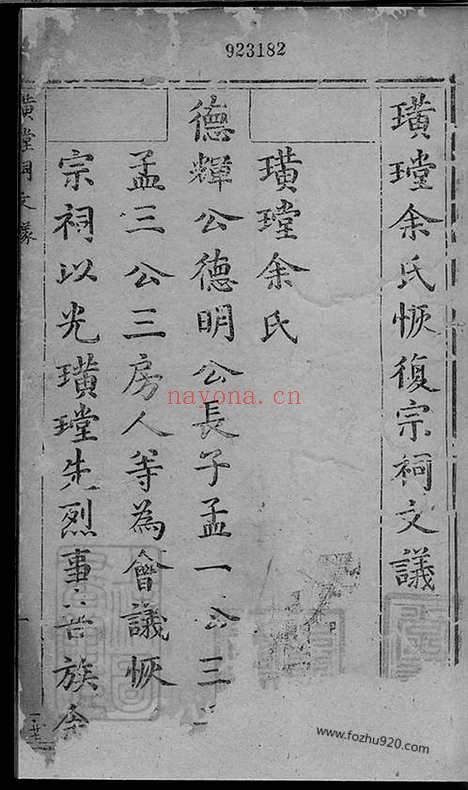 923182
璜瑝余氏恢復宗祠文議
璜瑝余氏
德輝公德明公長子孟一公三
孟三公三房人等為會議恢
宗祠以光璜瑝先烈事
族余
nayona.cn
www.fozhu920.com